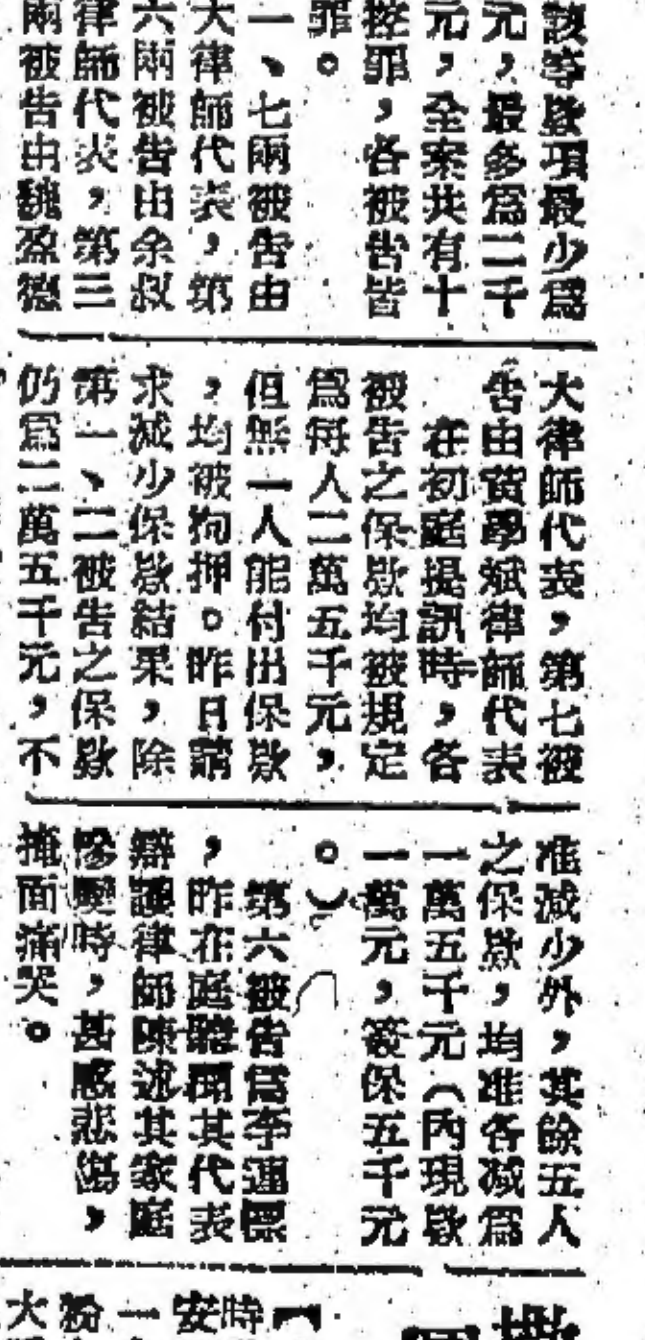 該等欵項最少爲
元，最多爲二千
元，全案共有十
控罪，各被告皆
罪。
一、七兩被告由
大律師代表，第
六兩被告由余叔
律師代表，第三
兩被告由魏盈德
大律師代表，第七被
告由黃學斌律師代表
在初庭提訊時，各
被告之保欵均被規定
爲每人二萬五千元，
但無一人能付出保欵
，均被拘押。昨日請
求减少保欵結果，除
第一、二被告之保欵
仍爲二萬五千元，不
准减少外，其餘五人
之保欵，均准各减爲
一萬五千元（內現欵
一萬元，簽保五千元
。）
第六被告爲李運標
，昨在庭聽聞其代表
辯護律師陳述其家庭
慘變時，甚感悲傷，
掩面痛哭。
時
安
一
粉
大